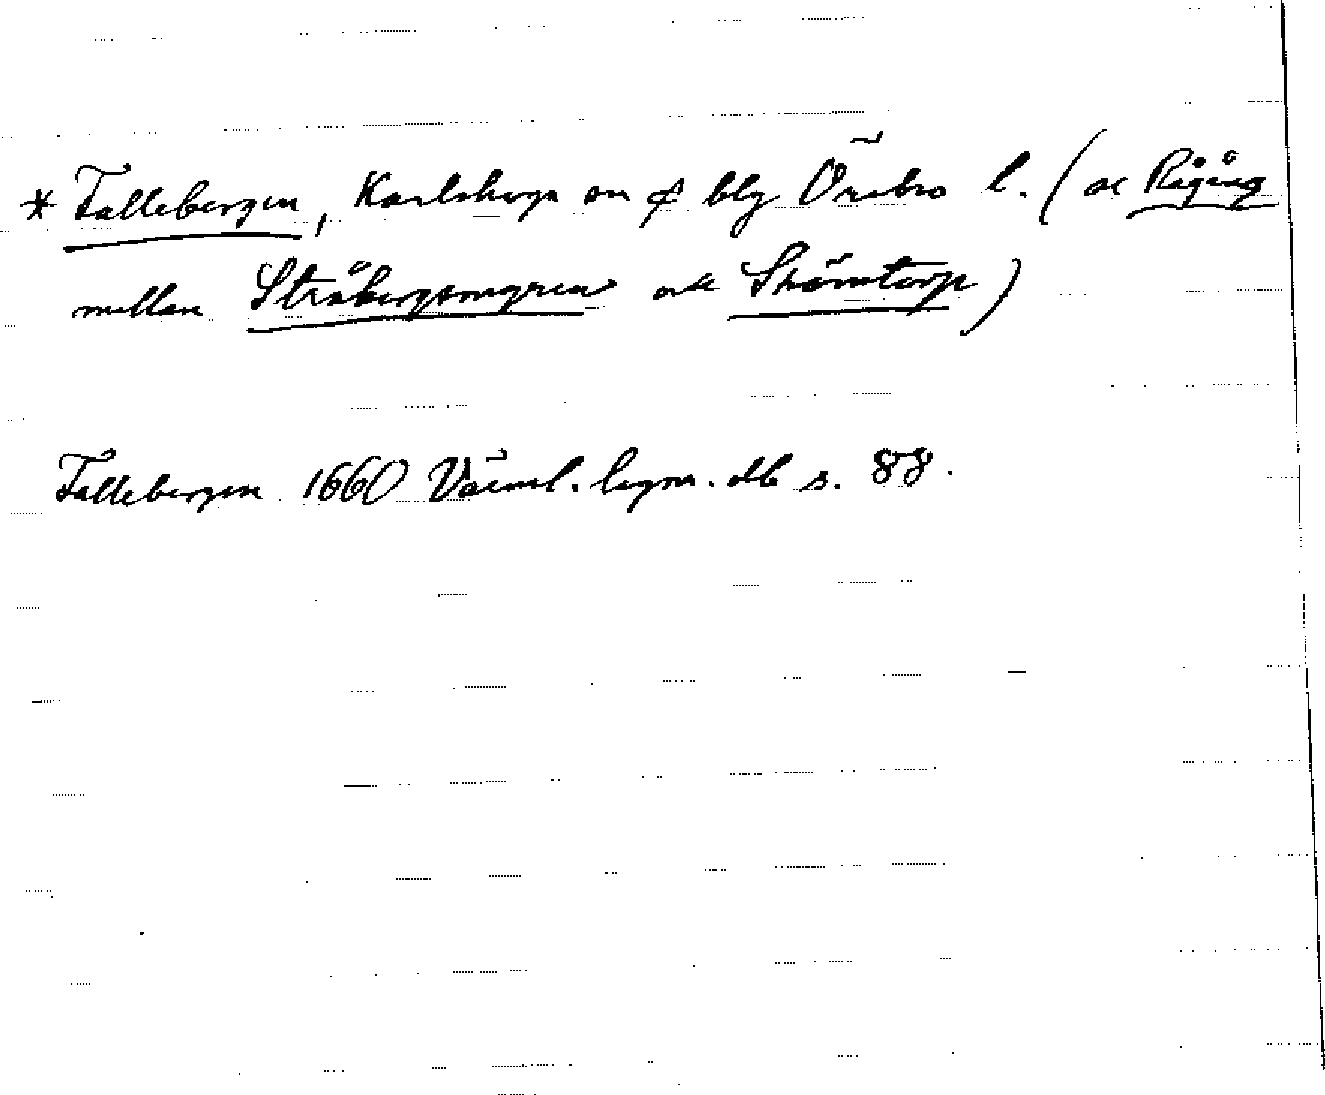 * Tallebergen, Karlskoga sn ₵ blg Örebro l. (ac Rågång
mellan Stråbergsmyren och Strömtorp)
Tallebergen 1660 Värml. lagm. db s. 88.